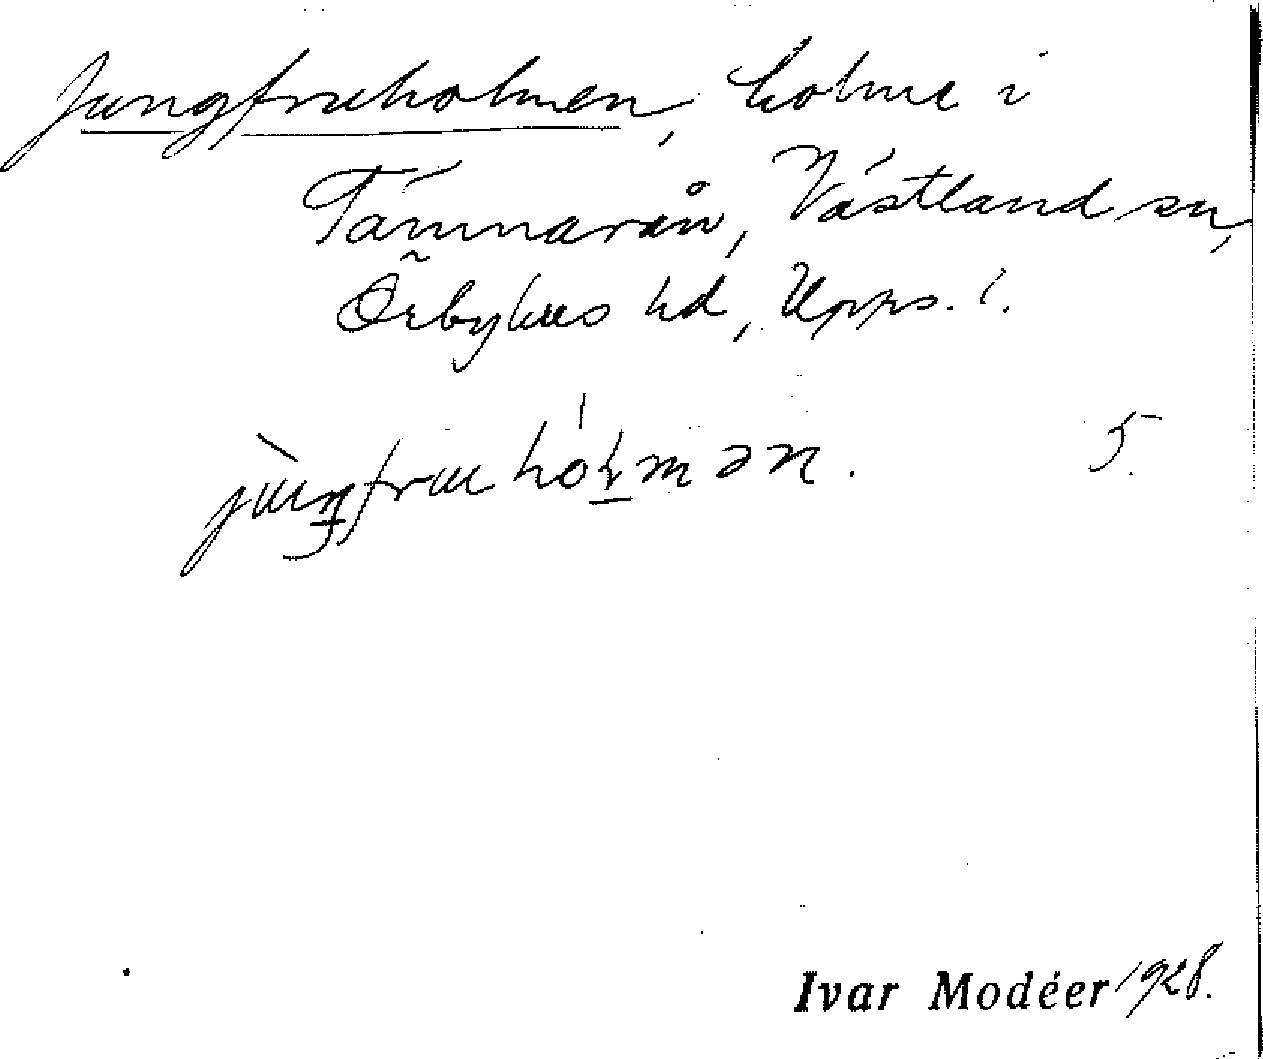 Jungfruholmen, holme i
Tämnarån, Västland sn,
Örbyhus hd, Upps. l.
5.
Ivar Modéer 1928.